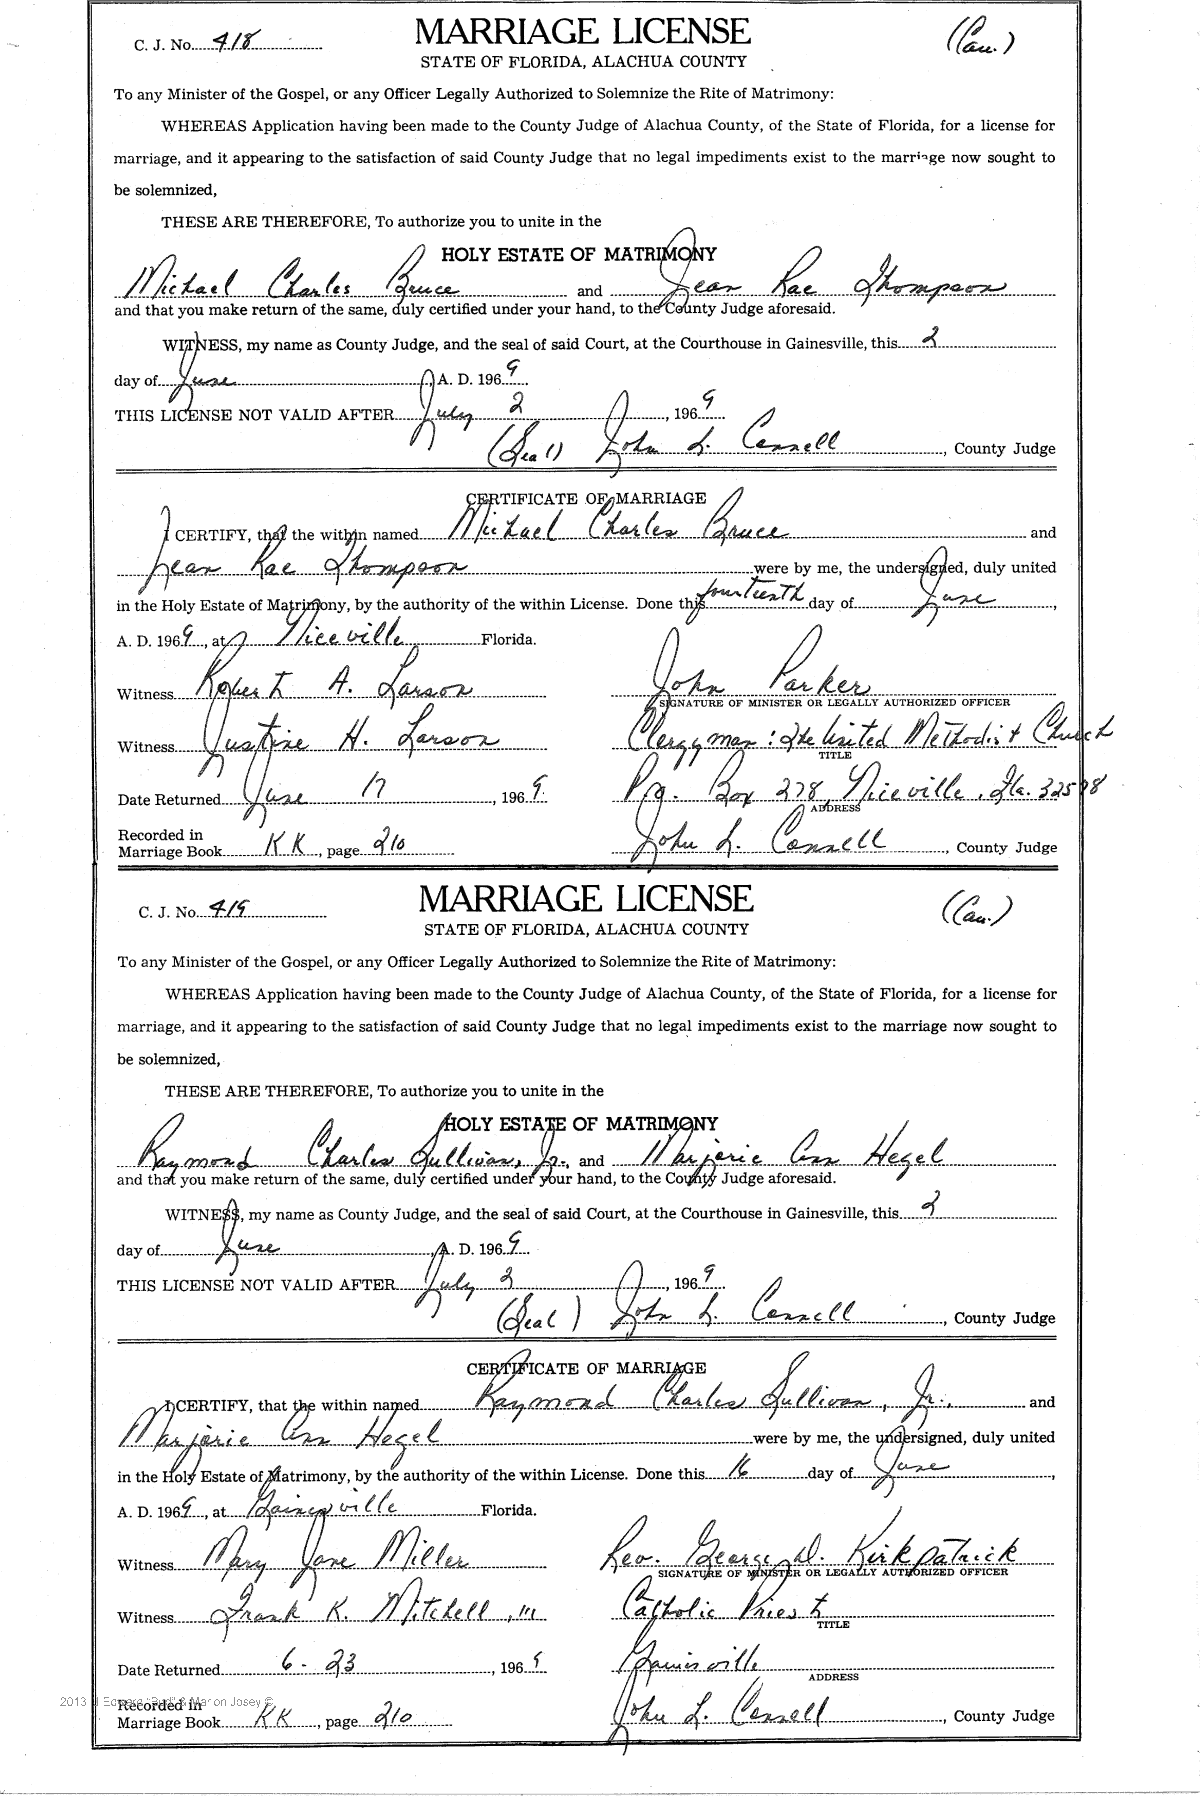 C. J. No. 418
MARRIAGE LICENSE
(Cau.)
STATE OF FLORIDA, ALACHUA COUNTY
To any Minister of the Gospel, or any Officer Legally Authorized to Solemnize the Rite of Matrimony:
WHEREAS Application having been made to the County Judge of Alachua County, of the State of Florida, for a license for
marriage, and it appearing to the satisfaction of said County Judge that no legal impediments exist to the marriage now sought to
be solemnized,
THESE ARE THEREFORE, To authorize you to unite in the
HOLY ESTATE OF MATRIMONY
Michael Charles Bruce and Jean Rae Thompson
and that you make return of the same, duly certified under your hand, to the County Judge aforesaid.
WITNESS, my name as County Judge, and the seal of said Court, at the Courthouse in Gainesville, this 2
day of June A. D. 1969
THIS LICENSE NOT VALID AFTER July 2, 1969
(Seal) John L. Connell, County Judge
CERTIFICATE OF MARRIAGE
I CERTIFY, that the within named Michael Charles Bruce and
Jean Rae Thompson were by me, the undersigned, duly united
in the Holy Estate of Matrimony, by the authority of the within License. Done this fourteenth day of June,
A. D. 1969, at Niceville Florida.
Witness Robert A. Larson John Parker
SIGNATURE OF MINISTER OR LEGALLY AUTHORIZED OFFICER
Witness Justine H. Larson Clergyman: The United Methodist Church
TITLE
Date Returned June 17, 1969 P.O. Box 278, Niceville, Fla. 32578
ADDRESS
Recorded in
Marriage Book KK, page 210 John L. Connell, County Judge
C. J. No. 419
MARRIAGE LICENSE
(Cau.)
STATE OF FLORIDA, ALACHUA COUNTY
To any Minister of the Gospel, or any Officer Legally Authorized to Solemnize the Rite of Matrimony:
WHEREAS Application having been made to the County Judge of Alachua County, of the State of Florida, for a license for
marriage, and it appearing to the satisfaction of said County Judge that no legal impediments exist to the marriage now sought to
be solemnized,
THESE ARE THEREFORE, To authorize you to unite in the
HOLY ESTATE OF MATRIMONY
Raymond Charles Sullivan, Jr., and Marjorie Ann Hegel
and that you make return of the same, duly certified under your hand, to the County Judge aforesaid.
WITNESS, my name as County Judge, and the seal of said Court, at the Courthouse in Gainesville, this 2
day of June, A. D. 1969
THIS LICENSE NOT VALID AFTER July 2, 1969
(Seal) John L. Connell, County Judge
CERTIFICATE OF MARRIAGE
I CERTIFY, that the within named Raymond Charles Sullivan, Jr., and
Marjorie Ann Hegel were by me, the undersigned, duly united
in the Holy Estate of Matrimony, by the authority of the within License. Done this 16 day of June,
A. D. 1969, at Gainesville Florida.
Witness Mary Jane Miller Rev. George W. Kirkpatrick
SIGNATURE OF MINISTER OR LEGALLY AUTHORIZED OFFICER
Witness Frank K. Mitchell, III Catholic Priest
TITLE
Date Returned 6-23, 1969 Gainesville
ADDRESS
2013 Josey ©
Recorded in
Marriage Book KK, page 210 John L. Connell, County Judge